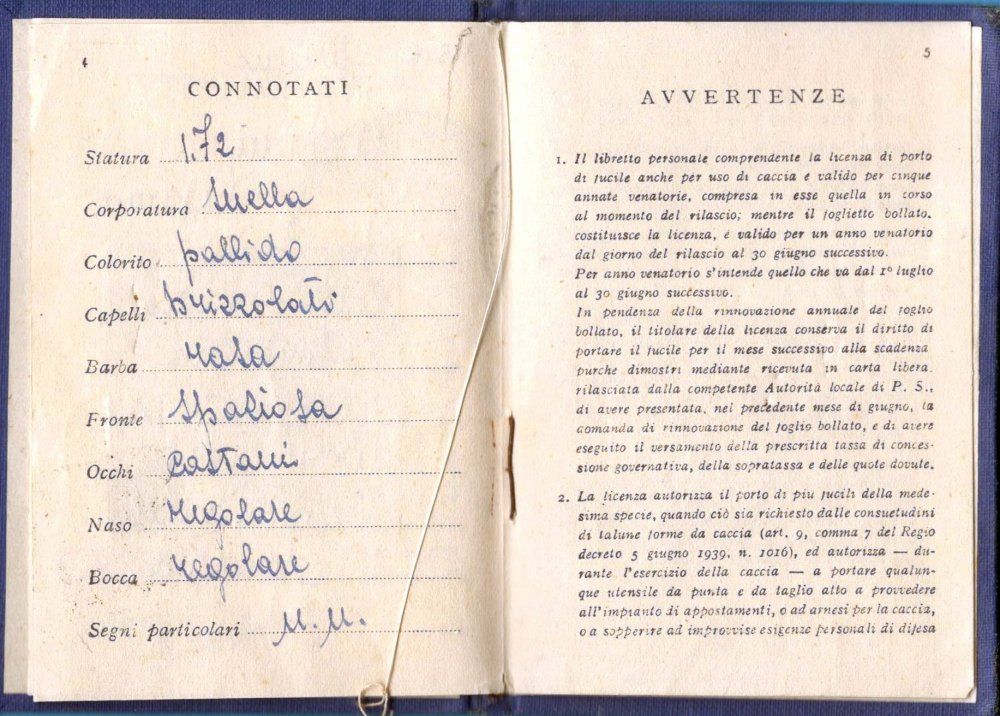 4
CONNOTATI
Statura 1.72
Corporatura snella
Colorito pallido
Capelli brizzolati
Barba rasa
Fronte spaziosa
Occhi castani
Naso regolare
Bocca regolare
Segni particolari N. N.
5
AVVERTENZE
1. Il libretto personale comprendente la licenza di porto
di fucile anche per uso di caccia e valido per cinque
annate venatorie, compresa in esse quella in corso
al momento del rilascio; mentre il foglietto bollato,
costituisce la licenza, é valido per un anno venatorio
dal giorno del rilascio al 30 giugno successivo.
Per anno venatorio s'intende quello che va dal 1º luglio
al 30 giugno successivo.
In pendenza della rinnovazione annuale del foglio
bollato, il titolare della licenza conserva il diritto di
portare il fucile per il mese successivo alla scadenza
purche dimostri mediante ricevuta in carta libera
rilasciata dalla competente Autorità locale di P. S.,
di avere presentata, nel precedente mese di giugno, la
comanda di rinnovazione del foglio bollato, e di avere
eseguito il versamento della prescritta tassa di conces-
sione governativa, della sopratassa e delle quote dovute.
2. La licenza autorizza il porto di piu fucili della mede-
sima specie, quando ciò sia richiesto dalle consuetudini
di talune forme da caccia (art. 9, comma 7 del Regio
decreto 5 giugno 1939, n. 1016), ed autorizza — du-
rante l'esercizio della caccia — a portare qualun-
que utensile da punta e da taglio atto a provvedere
all'impianto di appostamenti, o ad arnesi per la caccia,
o a sopperire ad improvvise esigenze personali di difesa